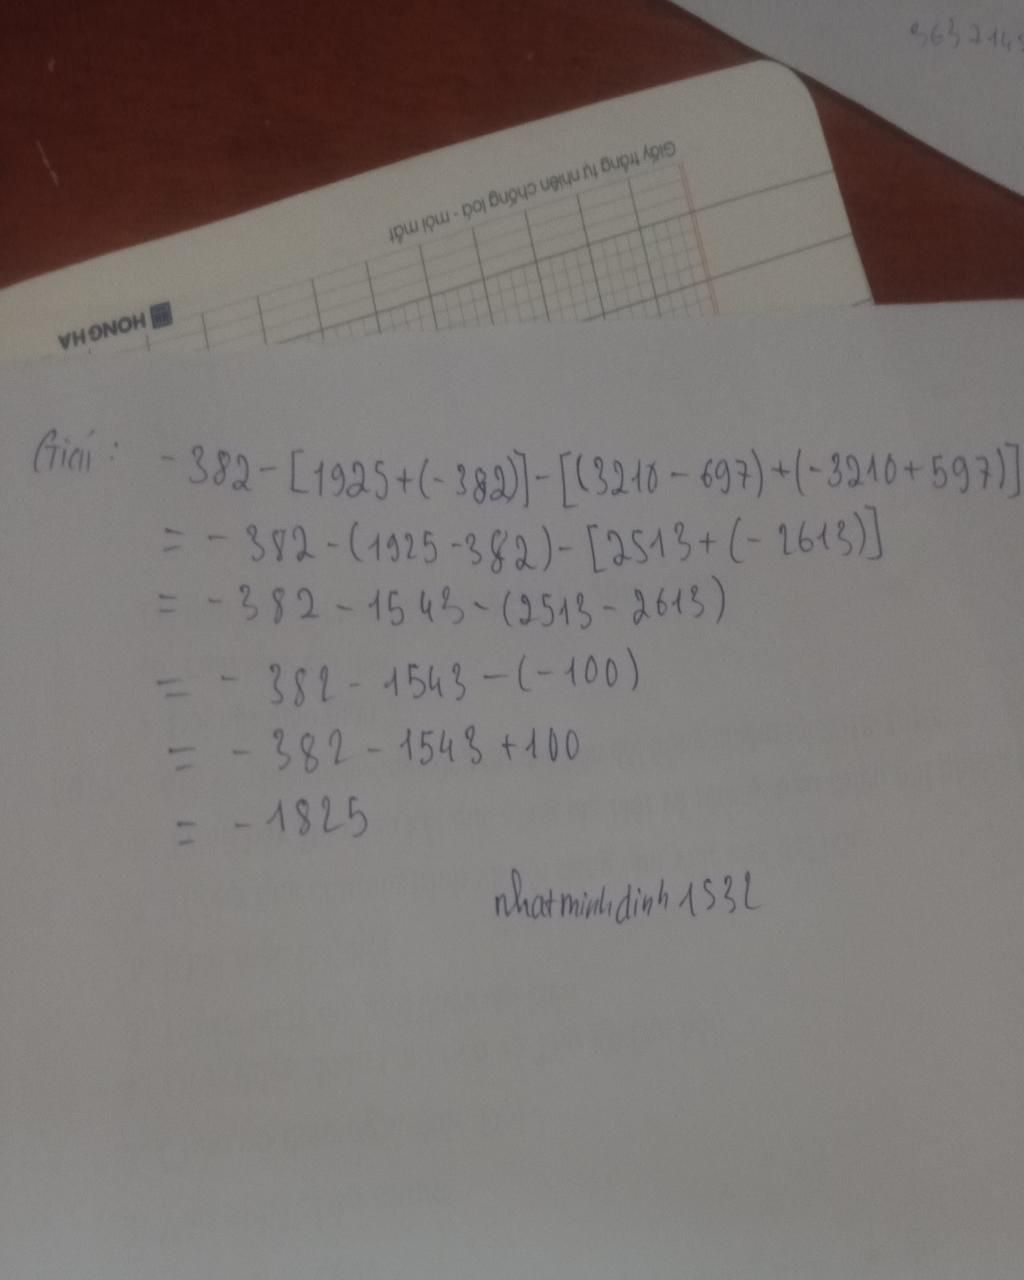 3632145
Giấy trắng tự nhiên chống loá - mỏi mắt
HONG HA
Giải : - 382 - [1925 + (- 382)] - [(3210 - 697) + (- 3210 + 597)]
= - 382 - (1925 - 382) - [2513 + (- 2613)]
= - 382 - 1543 - (2513 - 2613)
= - 382 - 1543 - (- 100)
= - 382 - 1543 + 100
= - 1825
nhatminhdinh1532